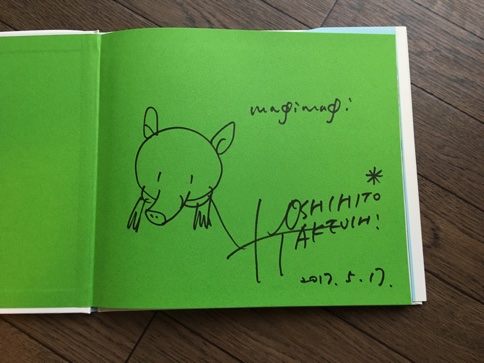 magimagi
*
YOSHIHITO
TAKEUCHI
2017.5.17.